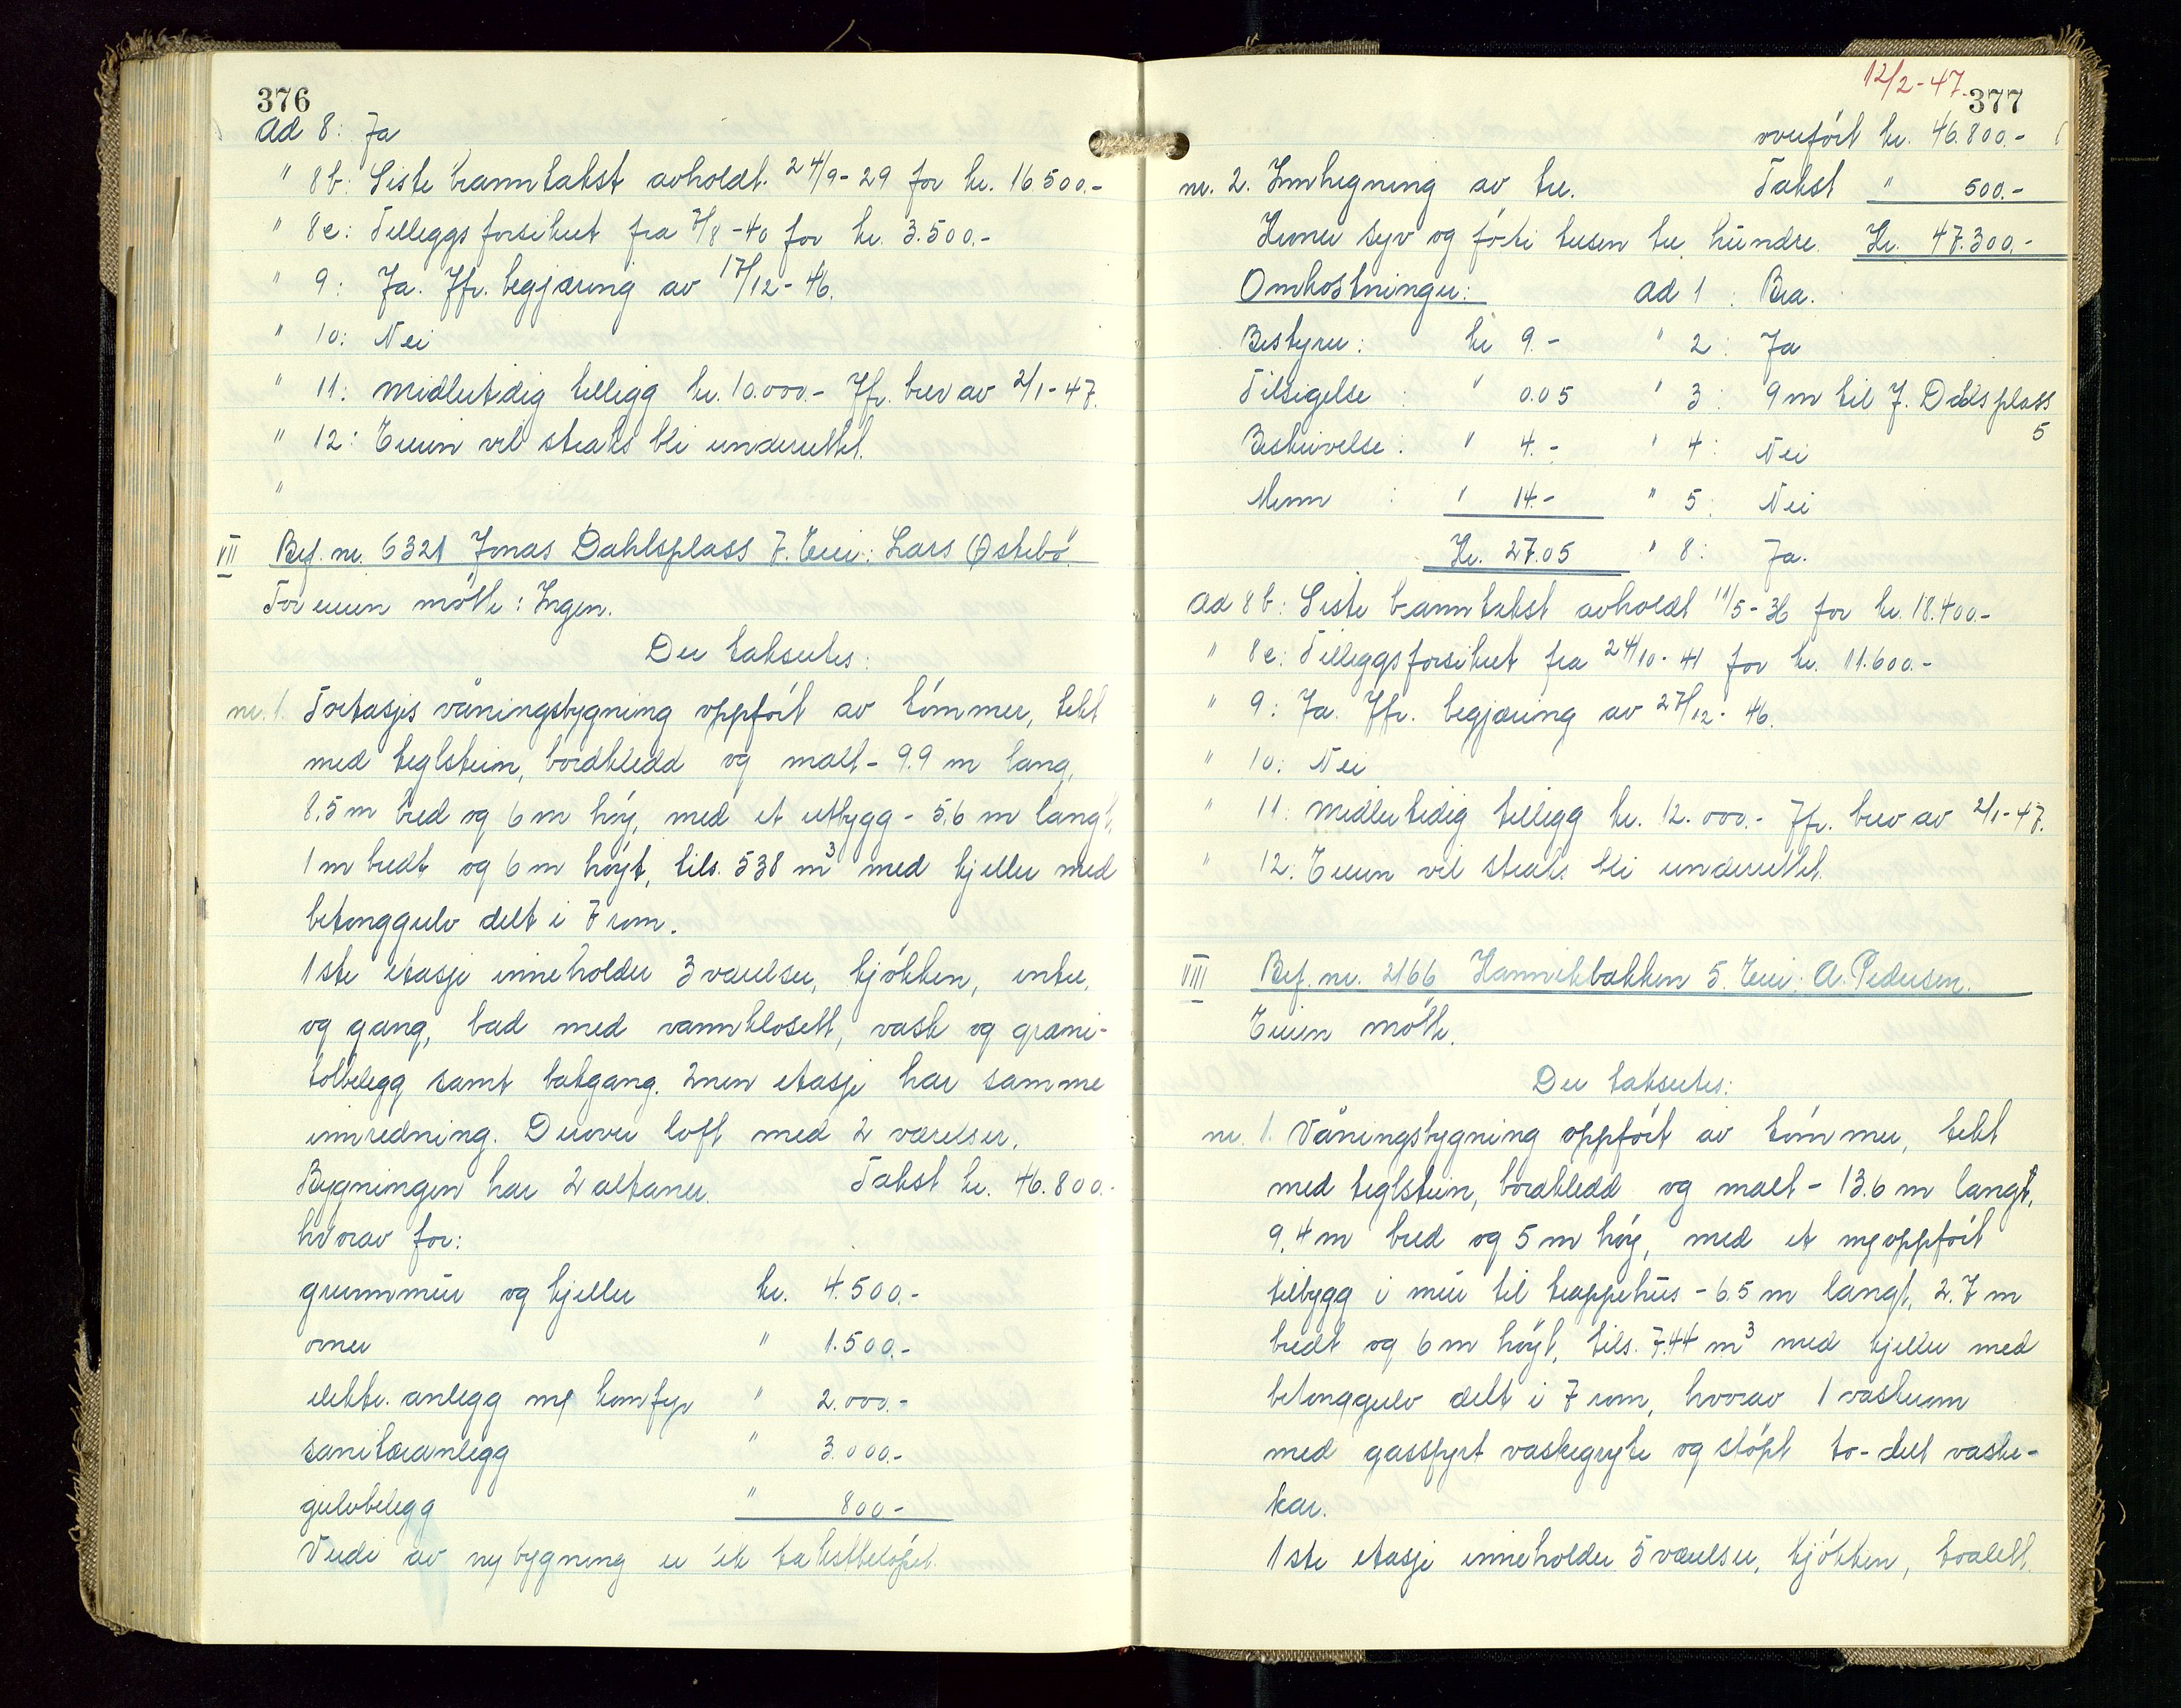 376
ad 8: Ja
" 8b: Siste branntakst avholdt 24/9-29 for kr. 16500.-
" 8c: Tilleggsforsikret fra 7/8-40 for kr. 3.500.-
" 9: Ja. Jfr. begjæring av 17/12-46.
" 10: Nei
" 11: midlertidig tillegg kr. 10.000.- Jfr. brev av 2/1-47.
" 12: Eieren vil straks bli underrettet.
"
VII Bef. nr. 6321 Jonas Dahlsplass 7. Eier: Lars Østebö.
For eieren mötte: Ingen.
Der takseres:
nr. 1. Toetasjes våningsbygning oppfört av tömmer, tekt
med teglstein, bordkledd og malt - 9.9 m lang,
8.5 m bred og 6 m höy, med et utbygg - 5.6 m langt,
1 m bredt og 6 m höyt, tils. 538 m³ med kjeller med
betonggulv delt i 7 rom.
1ste etasje inneholder 3 værelser, kjökken, entre,
og gang, bad med vannklosett, vask og grani-
tolbelegg samt bakgang. 2nen etasje har samme
innredning. Derover loft med 2 værelser.
Bygningen har 2 altaner. Takst kr. 46.800.-
hvorav for:
grunnmur og kjeller kr. 4.500.-
ovner " 1.500.-
elektr. anlegg m/ komfyr " 2.000.-
sanitæranlegg " 3.000.-
gulvbelegg " 800.-
Verdi av ny bygning er lik takstbelöpet.
12/2-47. 377
overfört kr. 46.800.-
nr. 2. Innhegning av tre. Takst " 500.-
Kroner syv og förti tusen tre hundre. Kr. 47.300.-
Omkostninger: ad 1: Bra.
Bestyrer: kr 9.- " 2: Ja
Tilsigelse: " 0.05 " 3: 9 m til J. Dahlsplass
5
Beskrivelse: " 4.- " 4: Nei
Menn: " 14.- " 5: Nei
Kr. 27.05 " 8: Ja.
ad 8b: Siste branntakst avholdt 11/5-36 for kr. 18.400.-
" 8c: Tilleggsforsikret fra 24/10-41 for kr. 11.600.-
" 9: Ja. Jfr. begjæring av 27/12-46.
" 10: Nei
" 11: midlertidig tillegg kr. 12.000.- Jfr. brev av 2/1-47.
" 12: Eieren vil straks bli underrettet.
VIII Bef. nr. 2166 Kannikbakken 5. Eier: A. Pedersen.
Eieren mötte.
Der takseres:
nr. 1. Våningsbygning oppfört av tömmer, tekt
med teglstein, bordkledd og malt - 13.6 m langt,
9,4 m bred og 5 m höy, med et nyoppfört
tilbygg i mur til trappehus - 6.5 m langt, 2.7 m
bredt og 6 m höyt, tils. 744 m³ med kjeller med
betonggulv delt i 7 rom, hvorav 1 vaskerom
med gassfyrt vaskegryte og stöpt to-delt vaske-
kar.
1ste etasje inneholder 5 værelser, kjökken, toalett,